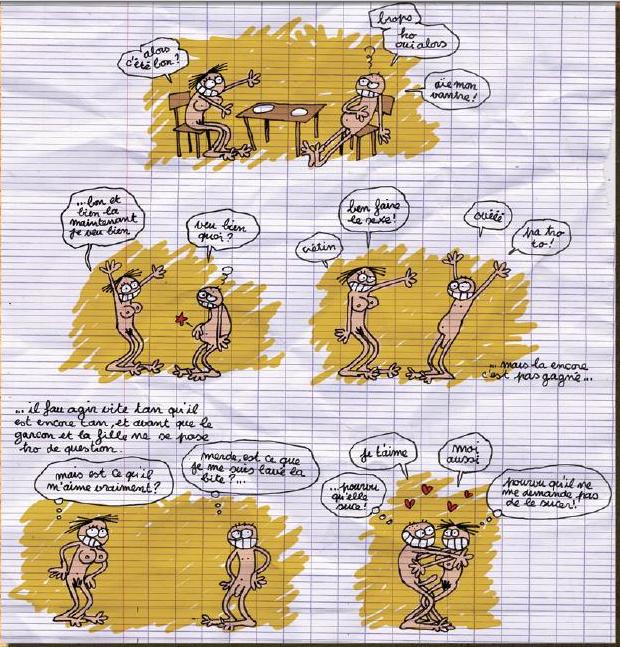 alors
c'été bon?
brops
ho
oui alors
aïe mon
vantre!
...bon et
bien la
maintenant
je veu bien
veu bien
quoi?
crétin
ben faire
le sexe!
ouéé
ha ho
ho!
...mais la encore
c'est pas gagné...
... il fau agir vite tan qu'il
est encore tan, et avant que le
garçon et la fille ne se pose
tro de question.
mais est ce qu'il
m'aime vraiment?
merde, est ce que
je me suis lavé la
bite?...
je t'aime
moi
aussi
...pourvu
qu'elle
suce!
pourvu qu'il ne
me demande pas
de le sucer!